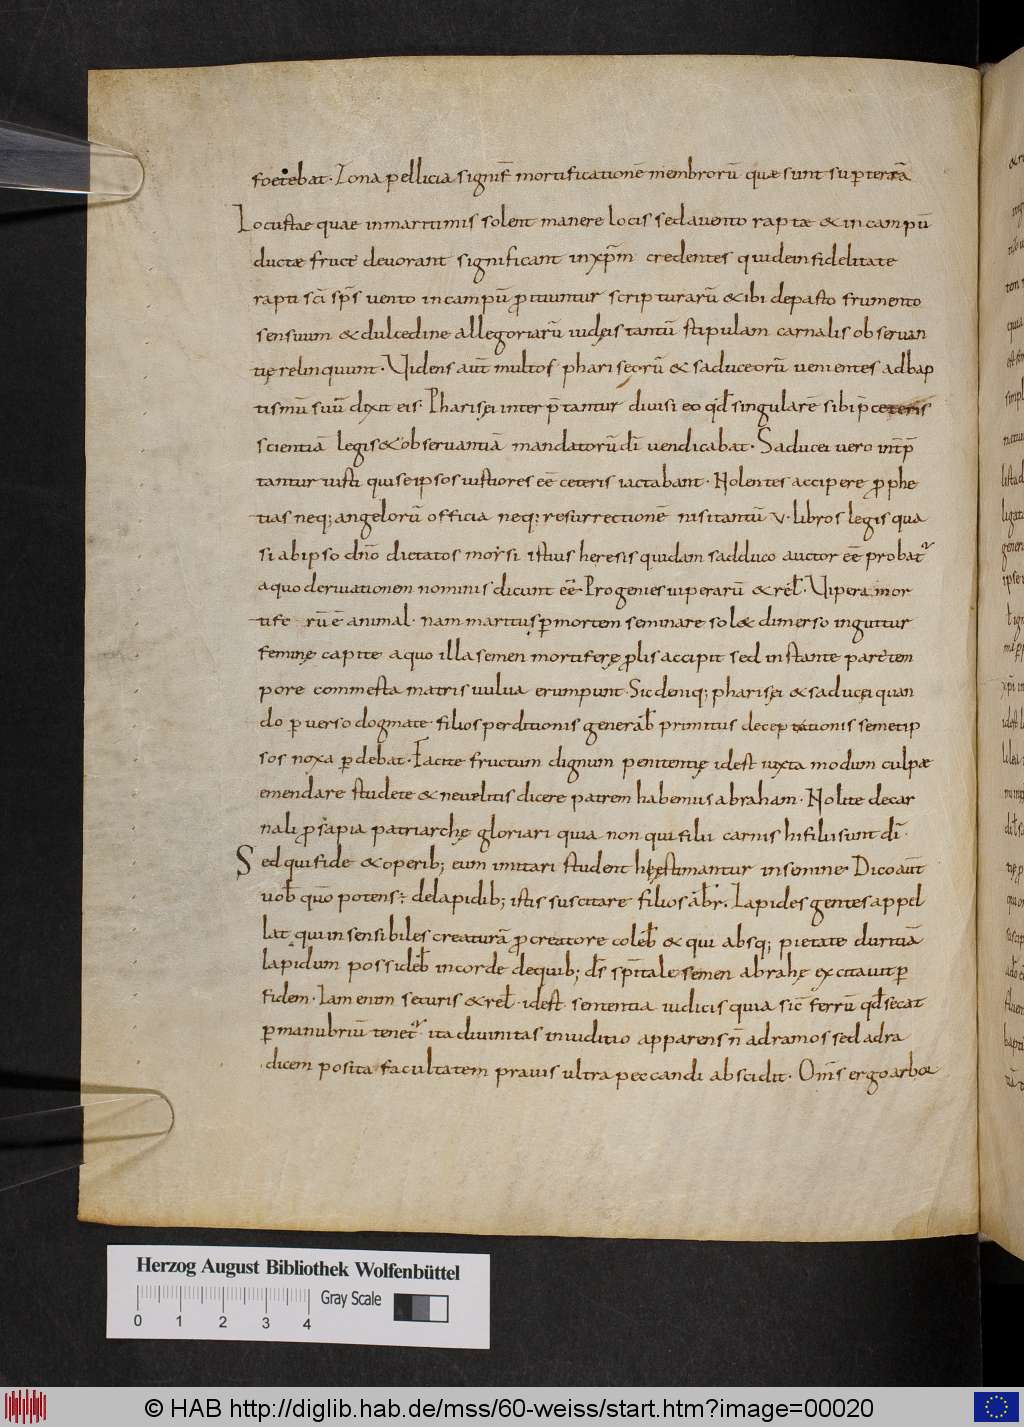 foetebat· Zona pellicia signif̄ mortificationē membrorū quæ sunt sup terrā
Locustae quae in marrtimis solent manere locis sed a vento raptæ & in campū
ductæ fruct devorant significant in xp̄m credentes qui de infidelitate
rapti sc̄i sp̄s vento in campū p̄tiuntur scripturarū & ibi depasto frumento
sensuum & dulcedine allegoriarū iudęis tantū stipulam carnalis observan
tię relinquunt· Videns aut̄ multos phariseorū & saduceorū venientes ad bap
tismū suū dixit eis· Pharisęi interp̄tantur divisi eo qd̄ singularē sibi p̄ ceteris
scientiā legis & observantiā mandatorū dī vendicabat· Saducei vero int̄p̄
tantur iusti qui se ipsos iustiores eē ceteris iactabant· Nolentes accipere p̄phe
tias neq; angelorū officia neq; resurrectionē nisi tantū v· libros legis qua
si ab ipso dn̄o dictatos morsi istius heresis quidam sadduco auctor eē probat᷑
a quo derivationem nominis dicunt eē· Progenies viperarū & rel̄· Vipera mor
tife rū ē animal· nam maritus p̱ mortem seminare sol& dimerso in guttur
feminę capite a quo illa semen mortiferę p̄lis accipit sed instante part tem
pore commesta matris vulva erumpunt· Sic deniq; pharisęi & saducęi quan
do p̱verso dogmate filios perditionis generab̄ primitus deceptationis semetip
sos noxa p̱debat· Facite fructum dignum penitentię idest iuxta modum culpæ
emendare studete & ne velitis dicere patrem habemus abraham· Nolite de car
nali p̄sapia patriarchę gloriari quia non qui filii carnis hi filii sunt dī·
Sed qui fide & operib; eum imitari student hi ęstimantur in semine· Dico aut̄
vob̄ quō potens ÷ de lapidib; istis suscitare filios ābr̄· Lapides gentes appel
lat qui insensibiles creaturā p̄ creatore coleb̄ & qui absq; pietate duritiā
lapidum possideb̄ in corde de quib; dś sp̄tale semen abrahę excitavit p̱
fidem· Iam enim securis & rel̄· idest sententia iudicis quia sic̄ ferrū qd̄ secat
p̱ manubriū tenet᷑ ita divinitas in iuditio apparens n̄ ad ramos sed ad ra
dicem posita facultatem pravis ultra peccandi abscidit· Om̄s ergo arbor
Herzog August Bibliothek Wolfenbüttel
Gray Scale
0 1 2 3 4
© HAB http://diglib.hab.de/mss/60-weiss/start.htm?image=00020